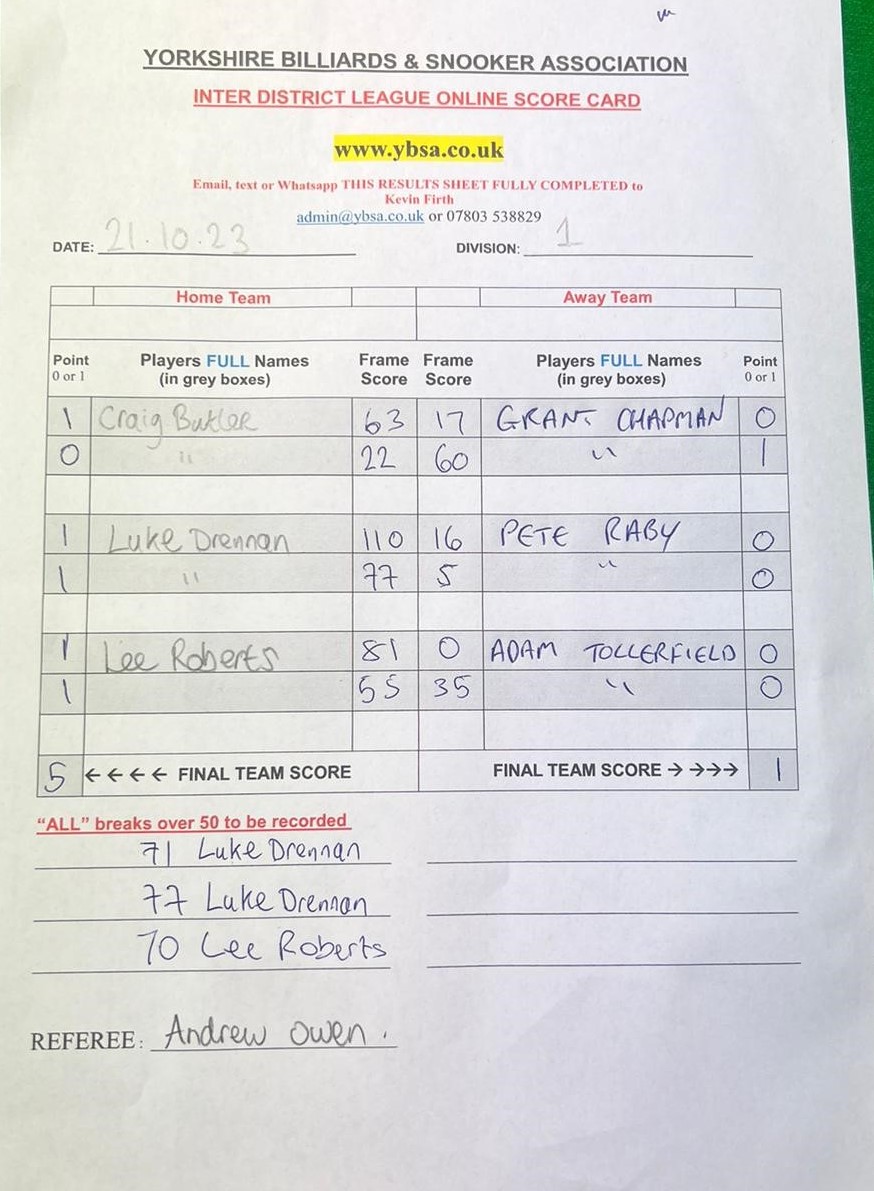 YORKSHIRE BILLIARDS & SNOOKER ASSOCIATION
INTER DISTRICT LEAGUE ONLINE SCORE CARD
www.ybsa.co.uk
Email, text or Whatsapp THIS RESULTS SHEET FULLY COMPLETED to
Kevin Firth
admin@ybsa.co.uk or 07803 538829
DATE: 21.10.23 DIVISION: 1
Home Team Away Team
Point Players FULL Names Frame Frame Players FULL Names Point
0 or 1 (in grey boxes) Score Score (in grey boxes) 0 or 1
1 Craig Butler 63 17 GRANT CHAPMAN 0
0 " 22 60 " 1
1 Luke Drennan 110 16 PETE RABY 0
1 " 77 5 " 0
1 Lee Roberts 81 0 ADAM TOLLERFIELD 0
1 55 35 " 0
5 ←←←← FINAL TEAM SCORE FINAL TEAM SCORE → →→→ 1
“ALL” breaks over 50 to be recorded
71 Luke Drennan
77 Luke Drennan
70 Lee Roberts
REFEREE: Andrew Owen.